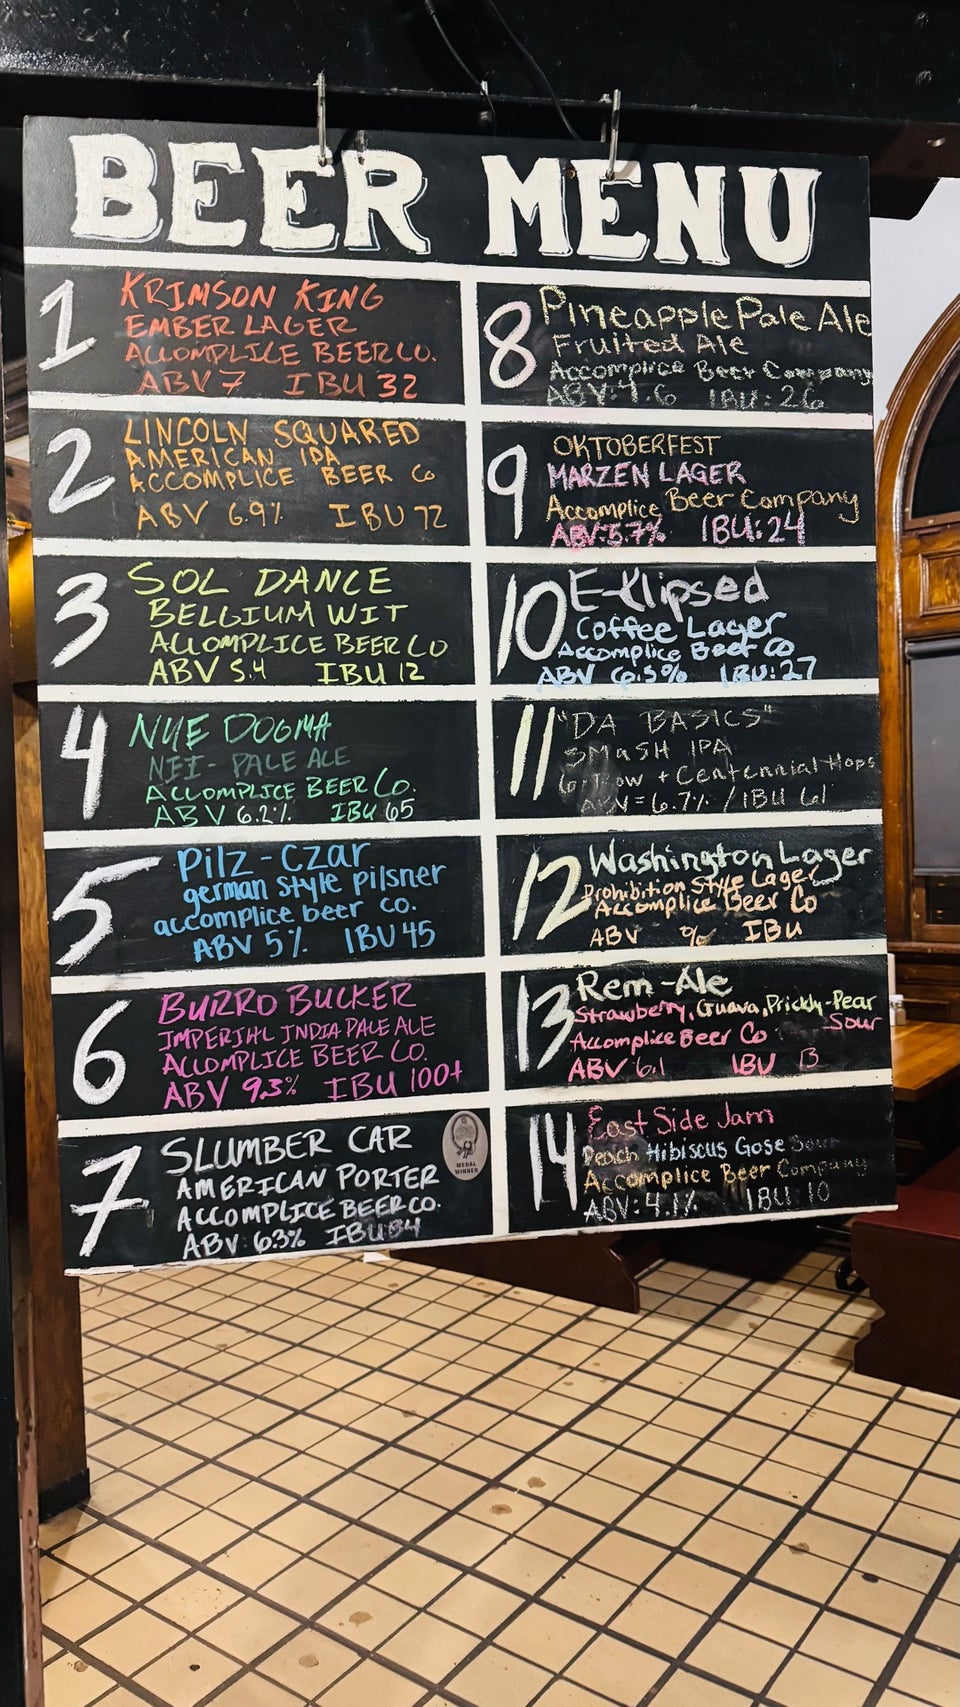 BEER MENU
1
KRIMSON KING
EMBER LAGER
ACCOMPLICE BEER CO.
ABV 7 IBU 32
2
LINCOLN SQUARED
AMERICAN IPA
ACCOMPLICE BEER CO
ABV 6.9% IBU 72
3
SOL DANCE
BELGIUM WIT
ACCOMPLICE BEER CO
ABV 5.4 IBU 12
4
NYE DOGMA
NEI- PALE ALE
ACCOMPLICE BEER CO.
ABV 6.2% IBU 65
5
Pilz-Czar
german style pilsner
accomplice beer co.
ABV 5% IBU 45
6
BURRO BUCKER
IMPERIAL INDIA PALE ALE
ACCOMPLICE BEER CO.
ABV 9.3% IBU 100+
7
SLUMBER CAR
AMERICAN PORTER
ACCOMPLICE BEER CO.
ABV 6.3% IBU 34
MEDAL
WINNER
8
Pineapple Pale Ale
Fruited Ale
Accomplice Beer Company
ABV: .6 IBU: 26
9
OKTOBERFEST
MARZEN LAGER
Accomplice Beer Company
ABV: 5.7% IBU: 24
10
E-Klipsed
Coffee Lager
Accomplice Beer Co
ABV 6.5% IBU: 27
11
"DA BASICS"
SMaSH IPA
6-Row + Centennial Hops
ABV = 6.7% / IBU 61
12
Washington Lager
Prohibition Style Lager
Accomplice Beer Co
ABV % IBU
13
Rem-Ale
Strawberry, Guava, Prickly-Pear
Sour
Accomplice Beer Co
ABV 6.1 IBU 13
14
East Side Jam
Peach Hibiscus Gose Sour
Accomplice Beer Company
ABV: 4.1% IBU: 10